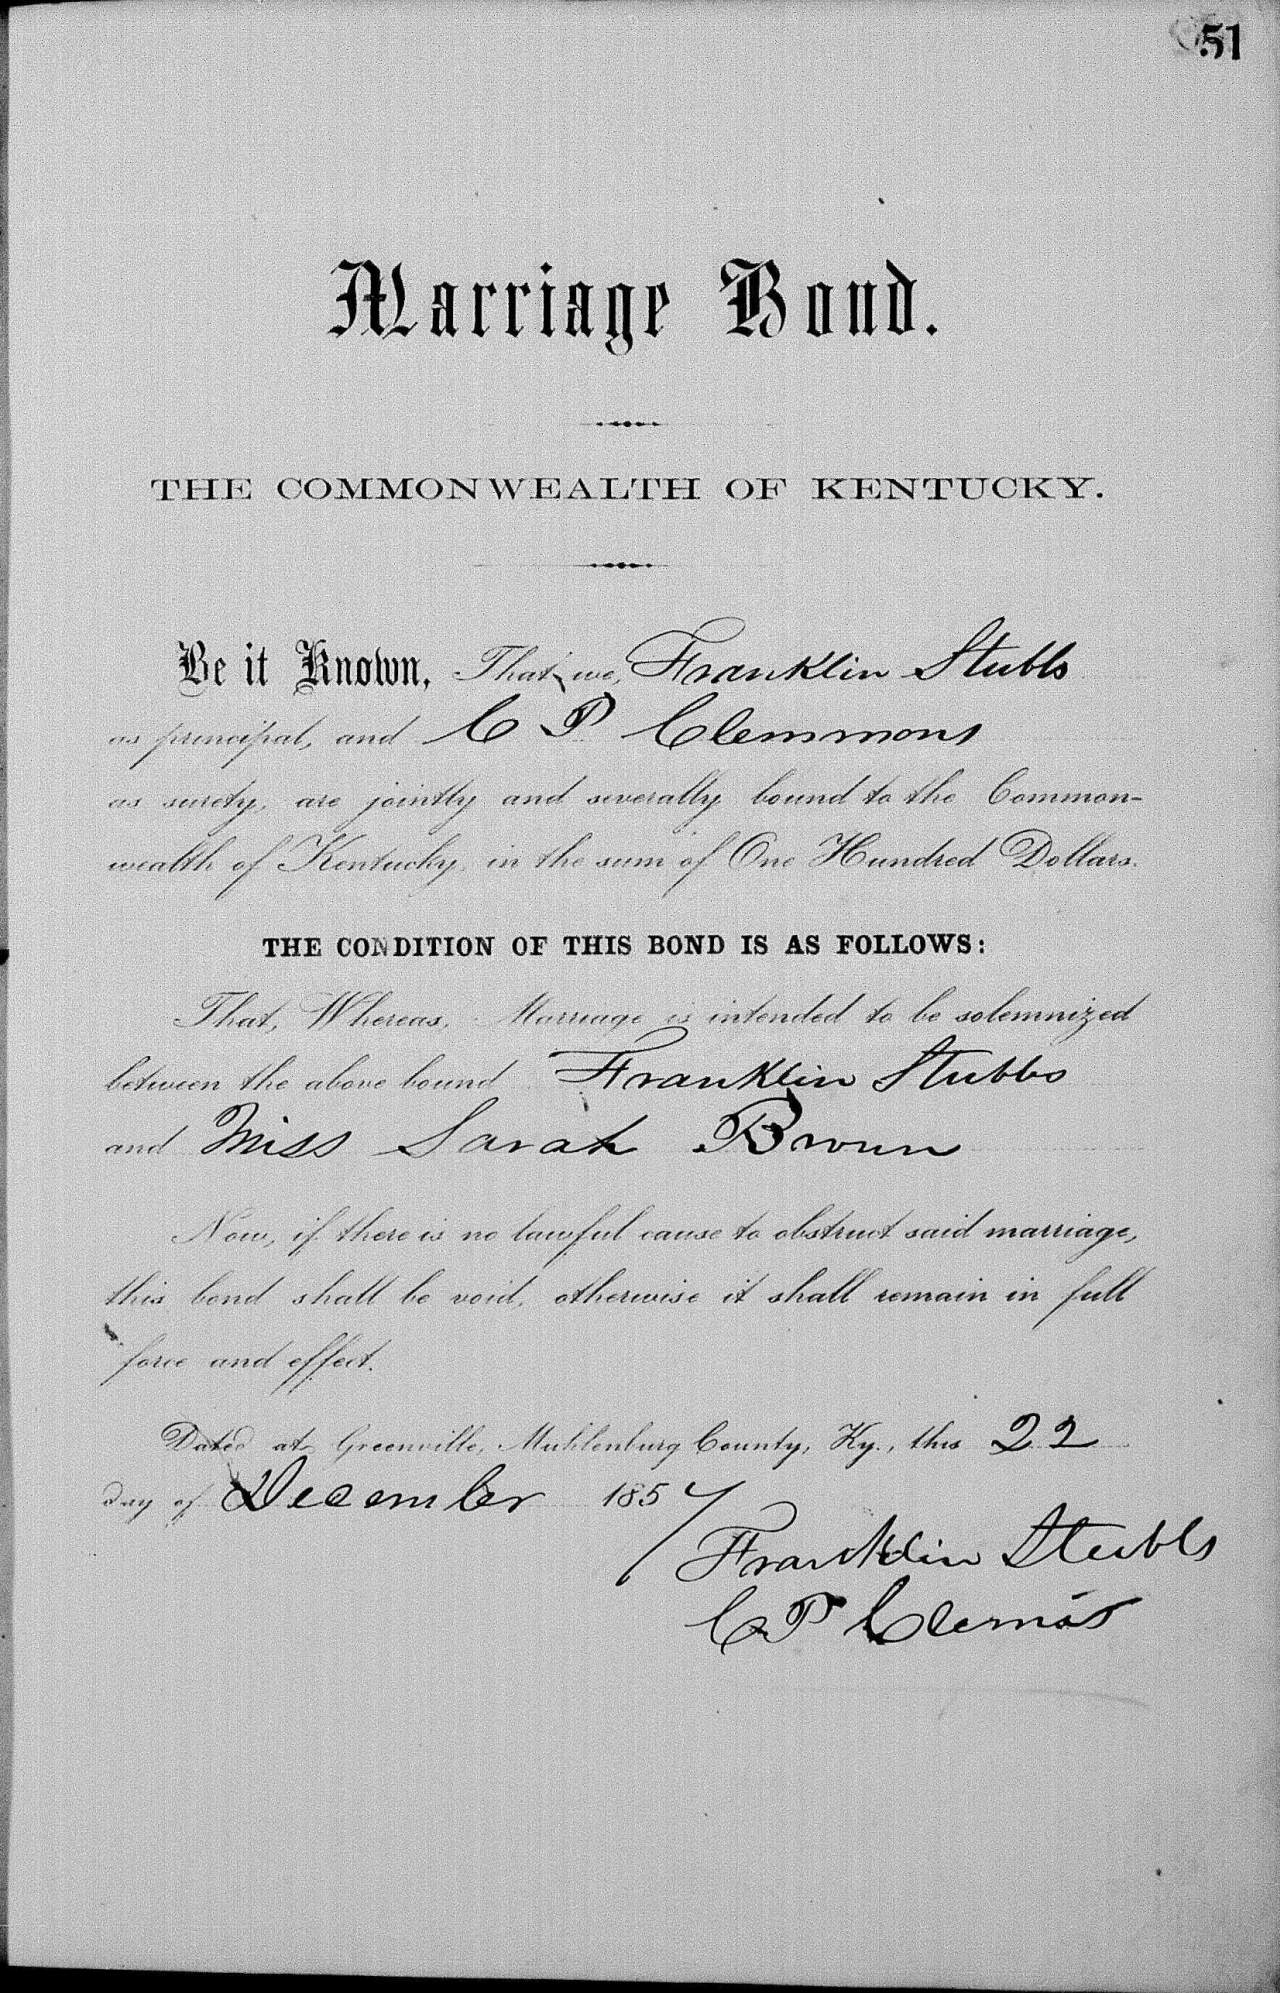 51
Marriage Bond.
THE COMMONWEALTH OF KENTUCKY.
Be it Known, That we, Franklin Stubbs
as principal, and C P Clemmons
as surety, are jointly and severally bound to the Common-
wealth of Kentucky, in the sum of One Hundred Dollars.
THE CONDITION OF THIS BOND IS AS FOLLOWS:
That, Whereas, Marriage is intended to be solemnized
between the above bound Franklin Stubbs
and Miss Sarah Brown
Now, if there is no lawful cause to obstruct said marriage,
this bond shall be void, otherwise it shall remain in full
force and effect.
Dated at Greenville, Muhlenburg County, Ky., this 22
day of December 1857
Franklin Stubbs
C P